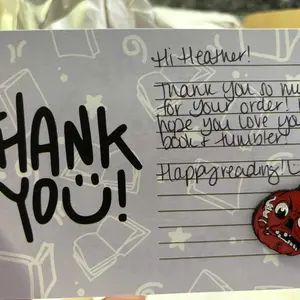 THANK
YOU!
Hi Heather!
Thank you so mu
for your order! I
hope you love you
book & tumbler!
Happy reading!